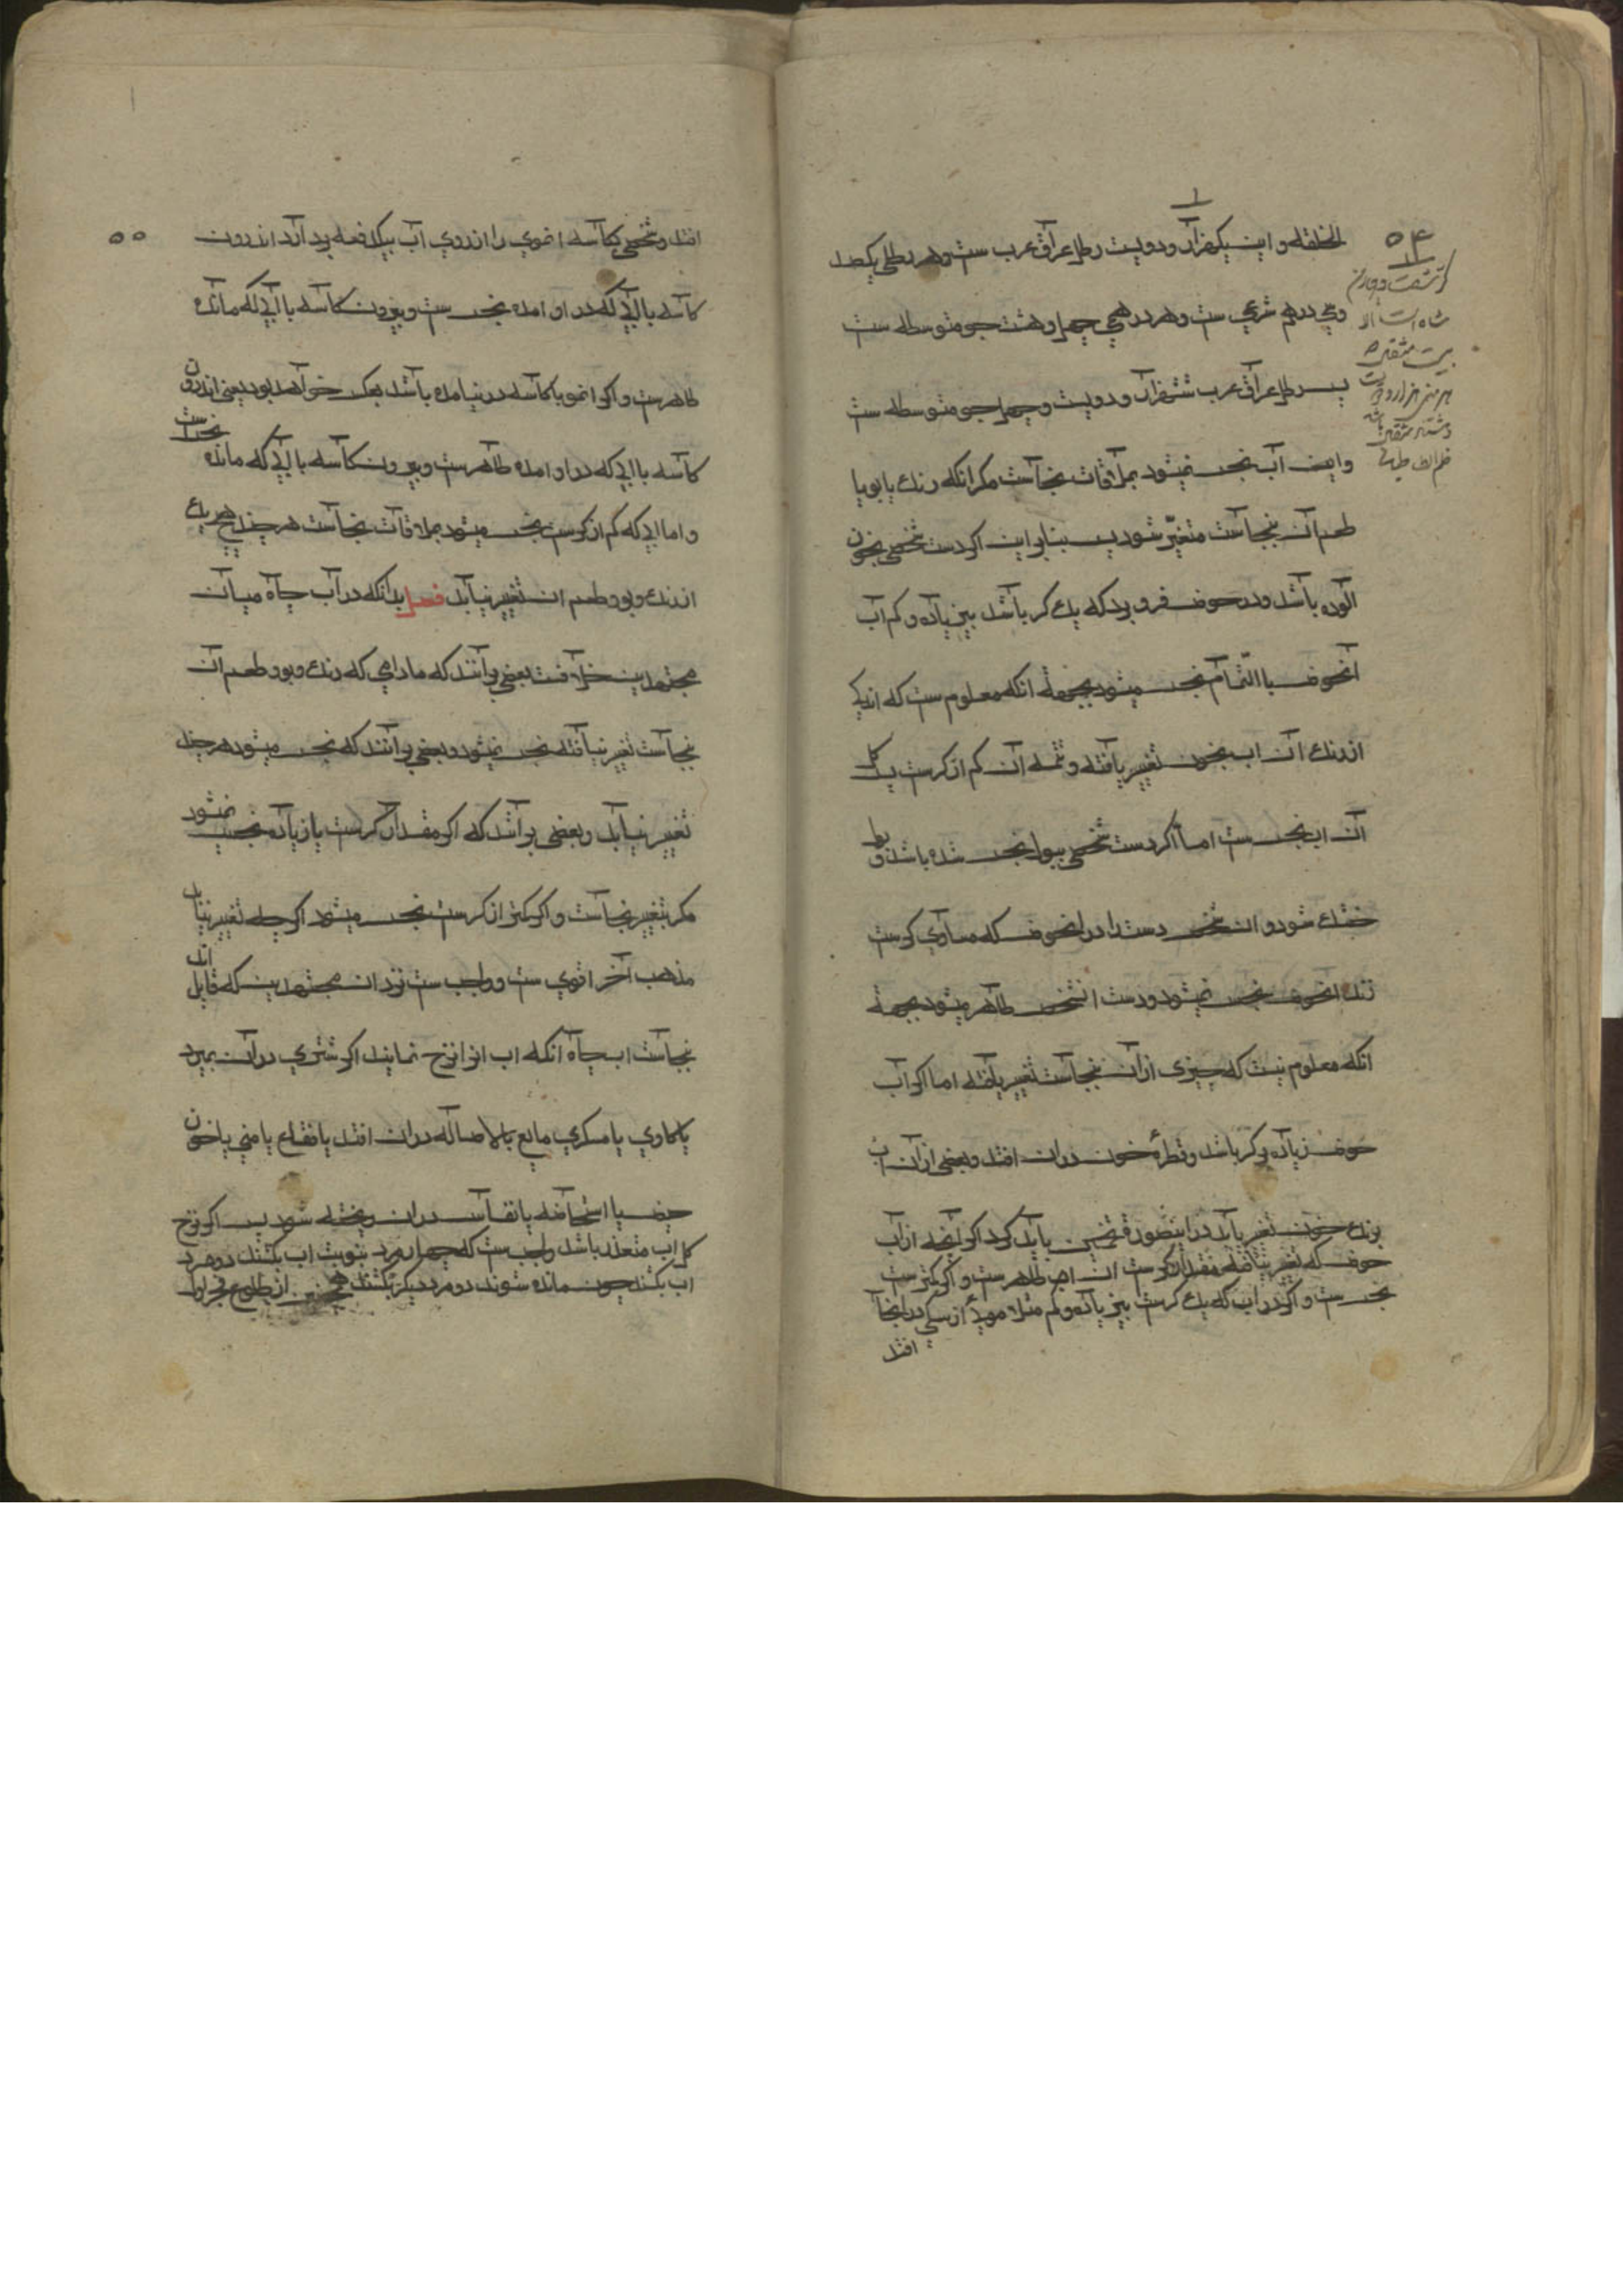 ۵۴
الخلقه و این یکهزار و دویست رطل عراق عرب ست و هر رطلی یکصد
و سی درهم شرعی ست و هر درهمی چهل و هشت جو متوسطه ست
پس رطل عراق عرب ششهزار و دویست و چهل جو متوسطه ست
و این آب نجس نمیشود بملاقات نجاست مکر انکه رنک یا بو یا
طعم آن بنجاست متغیّر شود پس بنابر این اکر دست شخصی بخون
آلوده باشد و در حوض فرو برد که یک کر باشد بی زیاده و کم آب
آنحوض باالتّمام نجس میشود بجهة انکه معلوم ست که اندکی
از رنک آن اب بخون تغییر یافته و تتمه آن کم از کرست پس کل
آن اب نجس ست اما اکر دست شخصی ببول نجس شده باشد و
خشک شود و ان شخص دست را در انحوض که مساوی کرست
زند انحوض نجس نمیشود و دست انشخص طاهر میشود بجهة
انکه معلوم نیست که چیزی از آن بنجاست تغییر یافته اما اکر آب
حوض زیاده بر کر باشد و قطرهٔ خون در ان افتد و بعضی از آن اب
برنک خون تغییر یابد در اینصورة تخمین باید کرد اکر آنچه از آب
حوض که تغییر نیافته مقدار کرست ان اب طاهر ست و اکر کمتر ست
نجس ست و اکر در اب که یک کرست بی زیاده و کم مثلا موی از سکی در انجا
افتد
۵۵
افتد و شخصی بکاسه انموی را از روی آب بیکدفعه بردارد اندرون
کاسه با آبی که در او امده نجس ست و بیرون کاسه با آبی که مانده
طاهر ست و اکر انمو با کاسه در نیامده باشد بعکس خواهد بود یعنی اندرون
کاسه با ابی که در او امده طاهر ست و بیرون کاسه با آبی که مانده نجس است
و اما ابی که کم از کرست نجس میشود بملاقات نجاست هر چند هیچ یک
از رنک و بو و طعم ان تغییر نیابد فصل بدانکه در آب چاه میان
مجتهدین خلافست بعضی برآنند که مادامی که رنک و بو و طعم آن
بنجاست تغییر نیافته نجس نمیشود و بعضی برآنند که نجس میشود هر چند
تغییر نیابد و بعضی برآنند که اکر مقدار کرست یا زیاده نجس نمیشود
مکر بتغییر نجاست و اکر کمتر از کرست نجس میشود اکر چه تغییر نیابد
مذهب آخر اقوی ست و واجب ست نزد ان مجتهدین که قایل اند
نجاست اب چاه آنکه اب انرا نزح نمایند اکر شتری در آن بمیرد
یا کاوی یا مسکری مایع بالاصاله در ان افتد یا فقاع یا منی یا خون
حیض یا استحاضه یا نفاس در ان ریخته شود پس اکر نزح
کل اب متعذر باشد واجب ست که چهار مرد بنوبت اب بکشند دو مرد
اب بکشند چون مانده شوند دو مرد دیکر بکشند همچنین از طلوع فجر اول